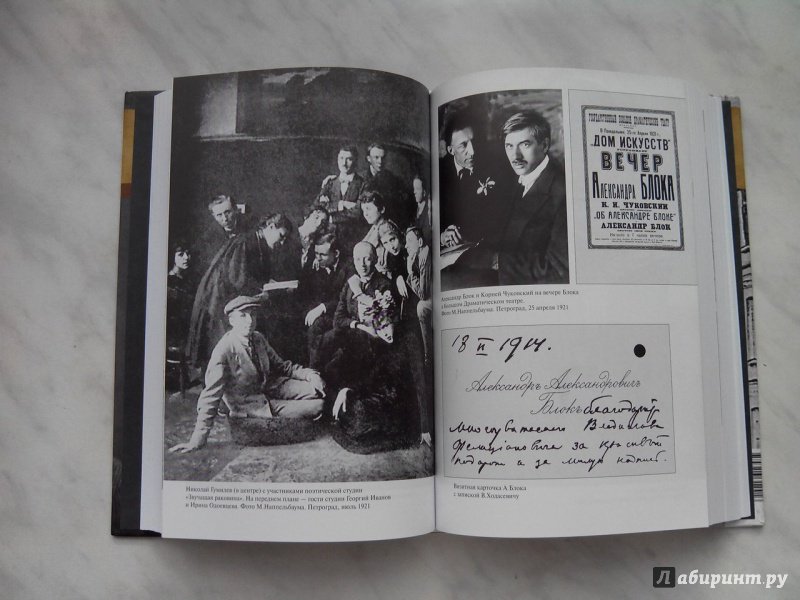 Николай Гумилев (в центре) с участниками поэтической студии
«Звучащая раковина». На переднем плане — гости студии Георгий Иванов
и Ирина Одоевцева. Фото М.Наппельбаума. Петроград, июль 1921
ГОСУДАРСТВЕННЫЙ БОЛЬШОЙ ДРАМАТИЧЕСКИЙ ТЕАТР
В Понедельник, 25-го Апреля 1921 г.
"ДОМ ИСКУССТВ"
ВЕЧЕР
АЛЕКСАНДРА БЛОКА
К. И. ЧУКОВСКИЙ
"ОБ АЛЕКСАНДРЕ БЛОКЕ"
АЛЕКСАНДР БЛОК
Александр Блок и Корней Чуковский на вечере Блока
в Большом Драматическом театре.
Фото М.Наппельбаума. Петроград, 25 апреля 1921
18 II 1914.
Александръ Александровичъ
Блокъ благодарит
многоуважаемого Владислава
Фелициановича за красивый
подарок и за милую надпись.
Визитная карточка А Блока
с запиской В.Ходасевичу
Лабиринт.ру